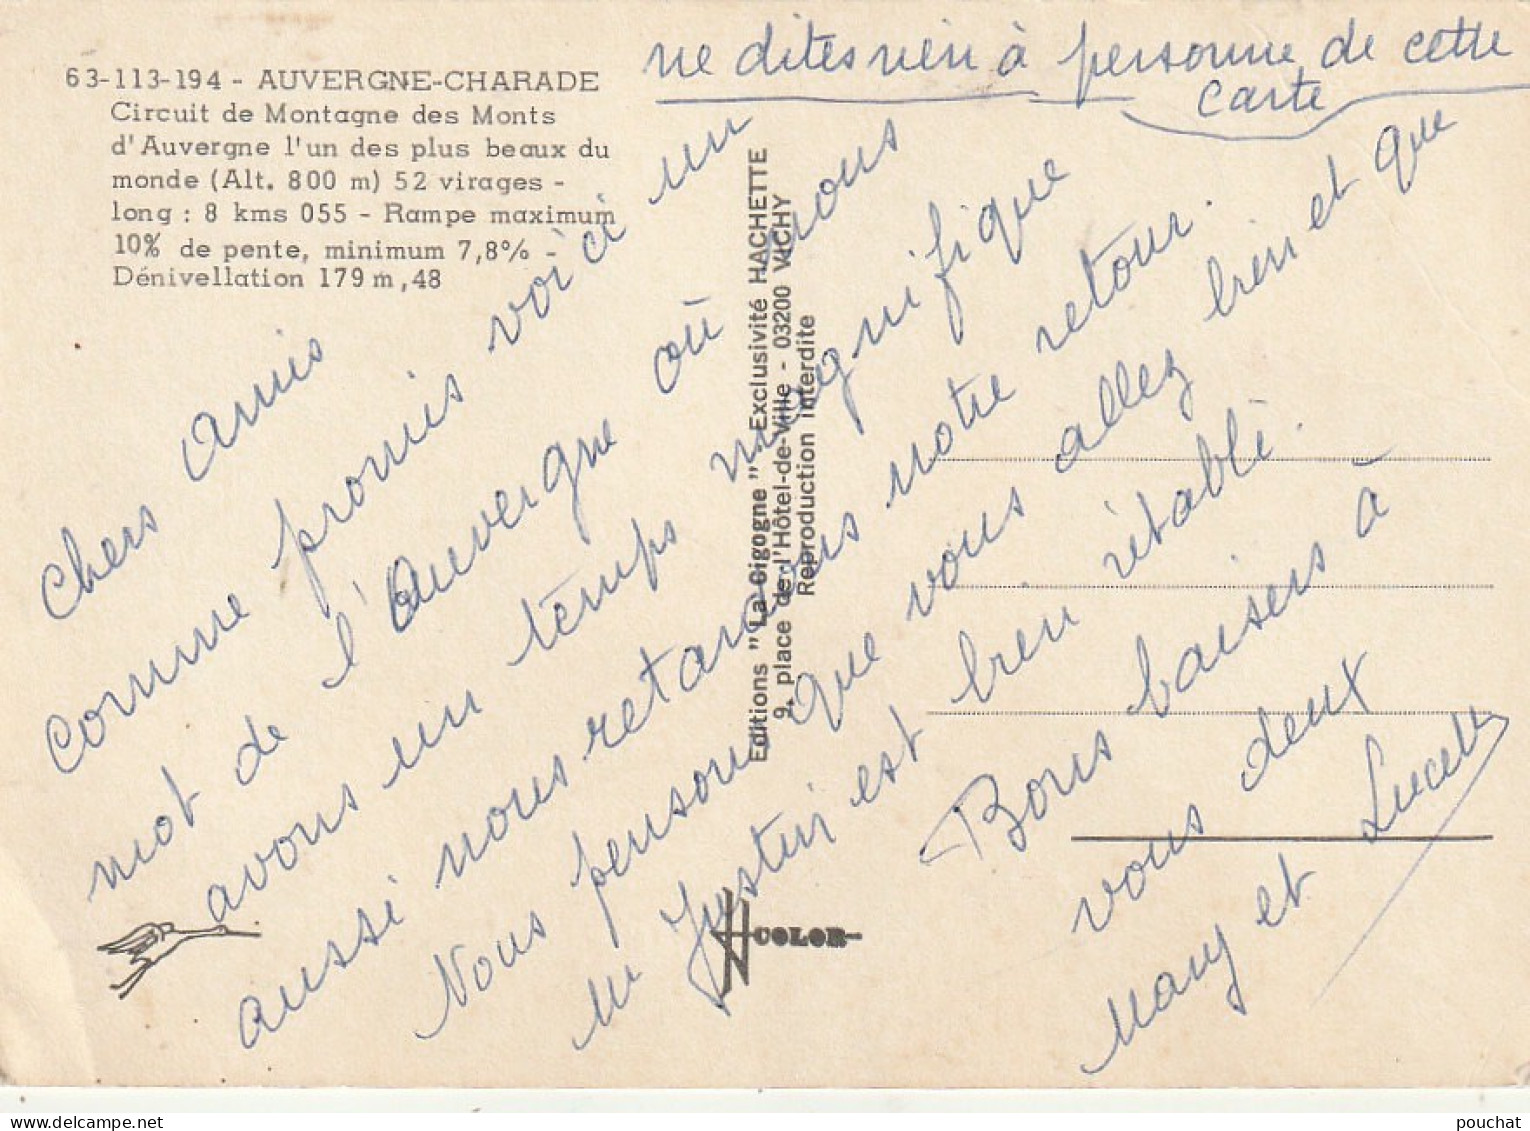 ne dites rien à personne de cette
carte
63-113-194 - AUVERGNE-CHARADE
Circuit de Montagne des Monts
d'Auvergne l'un des plus beaux du
monde (Alt. 800 m) 52 virages -
long : 8 kms 055 - Rampe maximum
10% de pente, minimum 7,8% -
Dénivellation 179 m,48
Chers Amis
Comme promis voici un
mot de l'Auvergne où nous
avons un temps magnifique
aussi nous retardons notre retour.
Nous pensons que vous allez bien et que
M Justin est bien rétabli.
Bons baisers à
vous deux
Mary et Lucette
Editions "La Cigogne" - Exclusivité HACHETTE
9, place de l'Hôtel-de-Ville - 03200 VICHY
Reproduction interdite
COLOR
pouchat